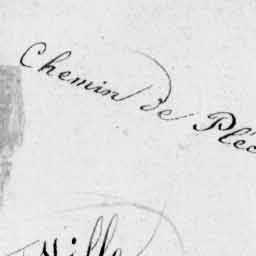 Chemin de Pléc
Ville